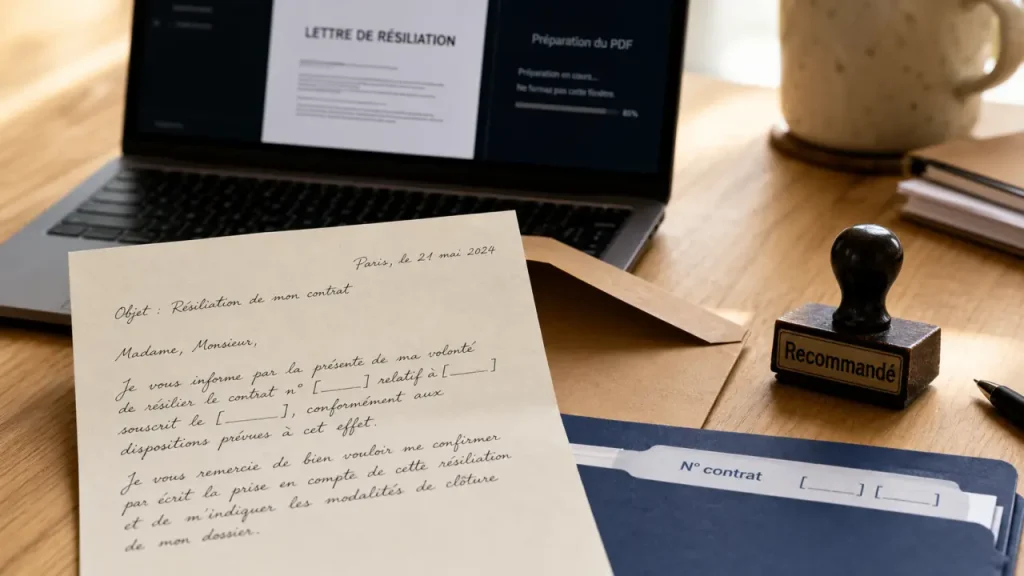 LETTRE DE RÉSILIATION
Préparation du PDF
Préparation en cours...
Ne fermez pas cette fenêtre.
Paris, le 21 mai 2024
Objet : Résiliation de mon contrat
Madame, Monsieur,
Je vous informe par la présente de ma volonté
de résilier le contrat n° [____] relatif à [____]
souscrit le [_____], conformément aux
dispositions prévues à cet effet.
Je vous remercie de bien vouloir me confirmer
par écrit la prise en compte de cette résiliation
et de m'indiquer les modalités de clôture
de mon dossier.
Recommandé
N° contrat [____] [____]